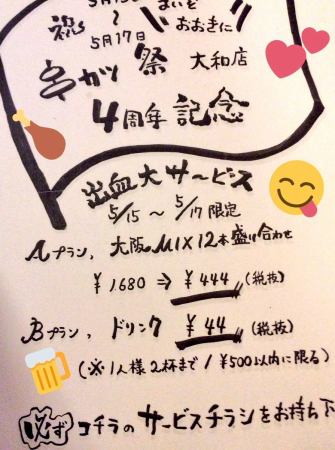 祝
5月15日
〜
5月17日
まいど
おおきに
串カツ祭 大和店
4周年記念
出血大サービス
5/15 〜 5/17 限定
Aプラン、大阪MIX12本盛り合わせ
¥1.680 ⇒ ¥444 (税抜)
Bプラン、ドリンク ¥44 (税抜)
(※1人様2杯まで / ¥500以内に限る)
必ず コチラのサービスチラシをお持ち下